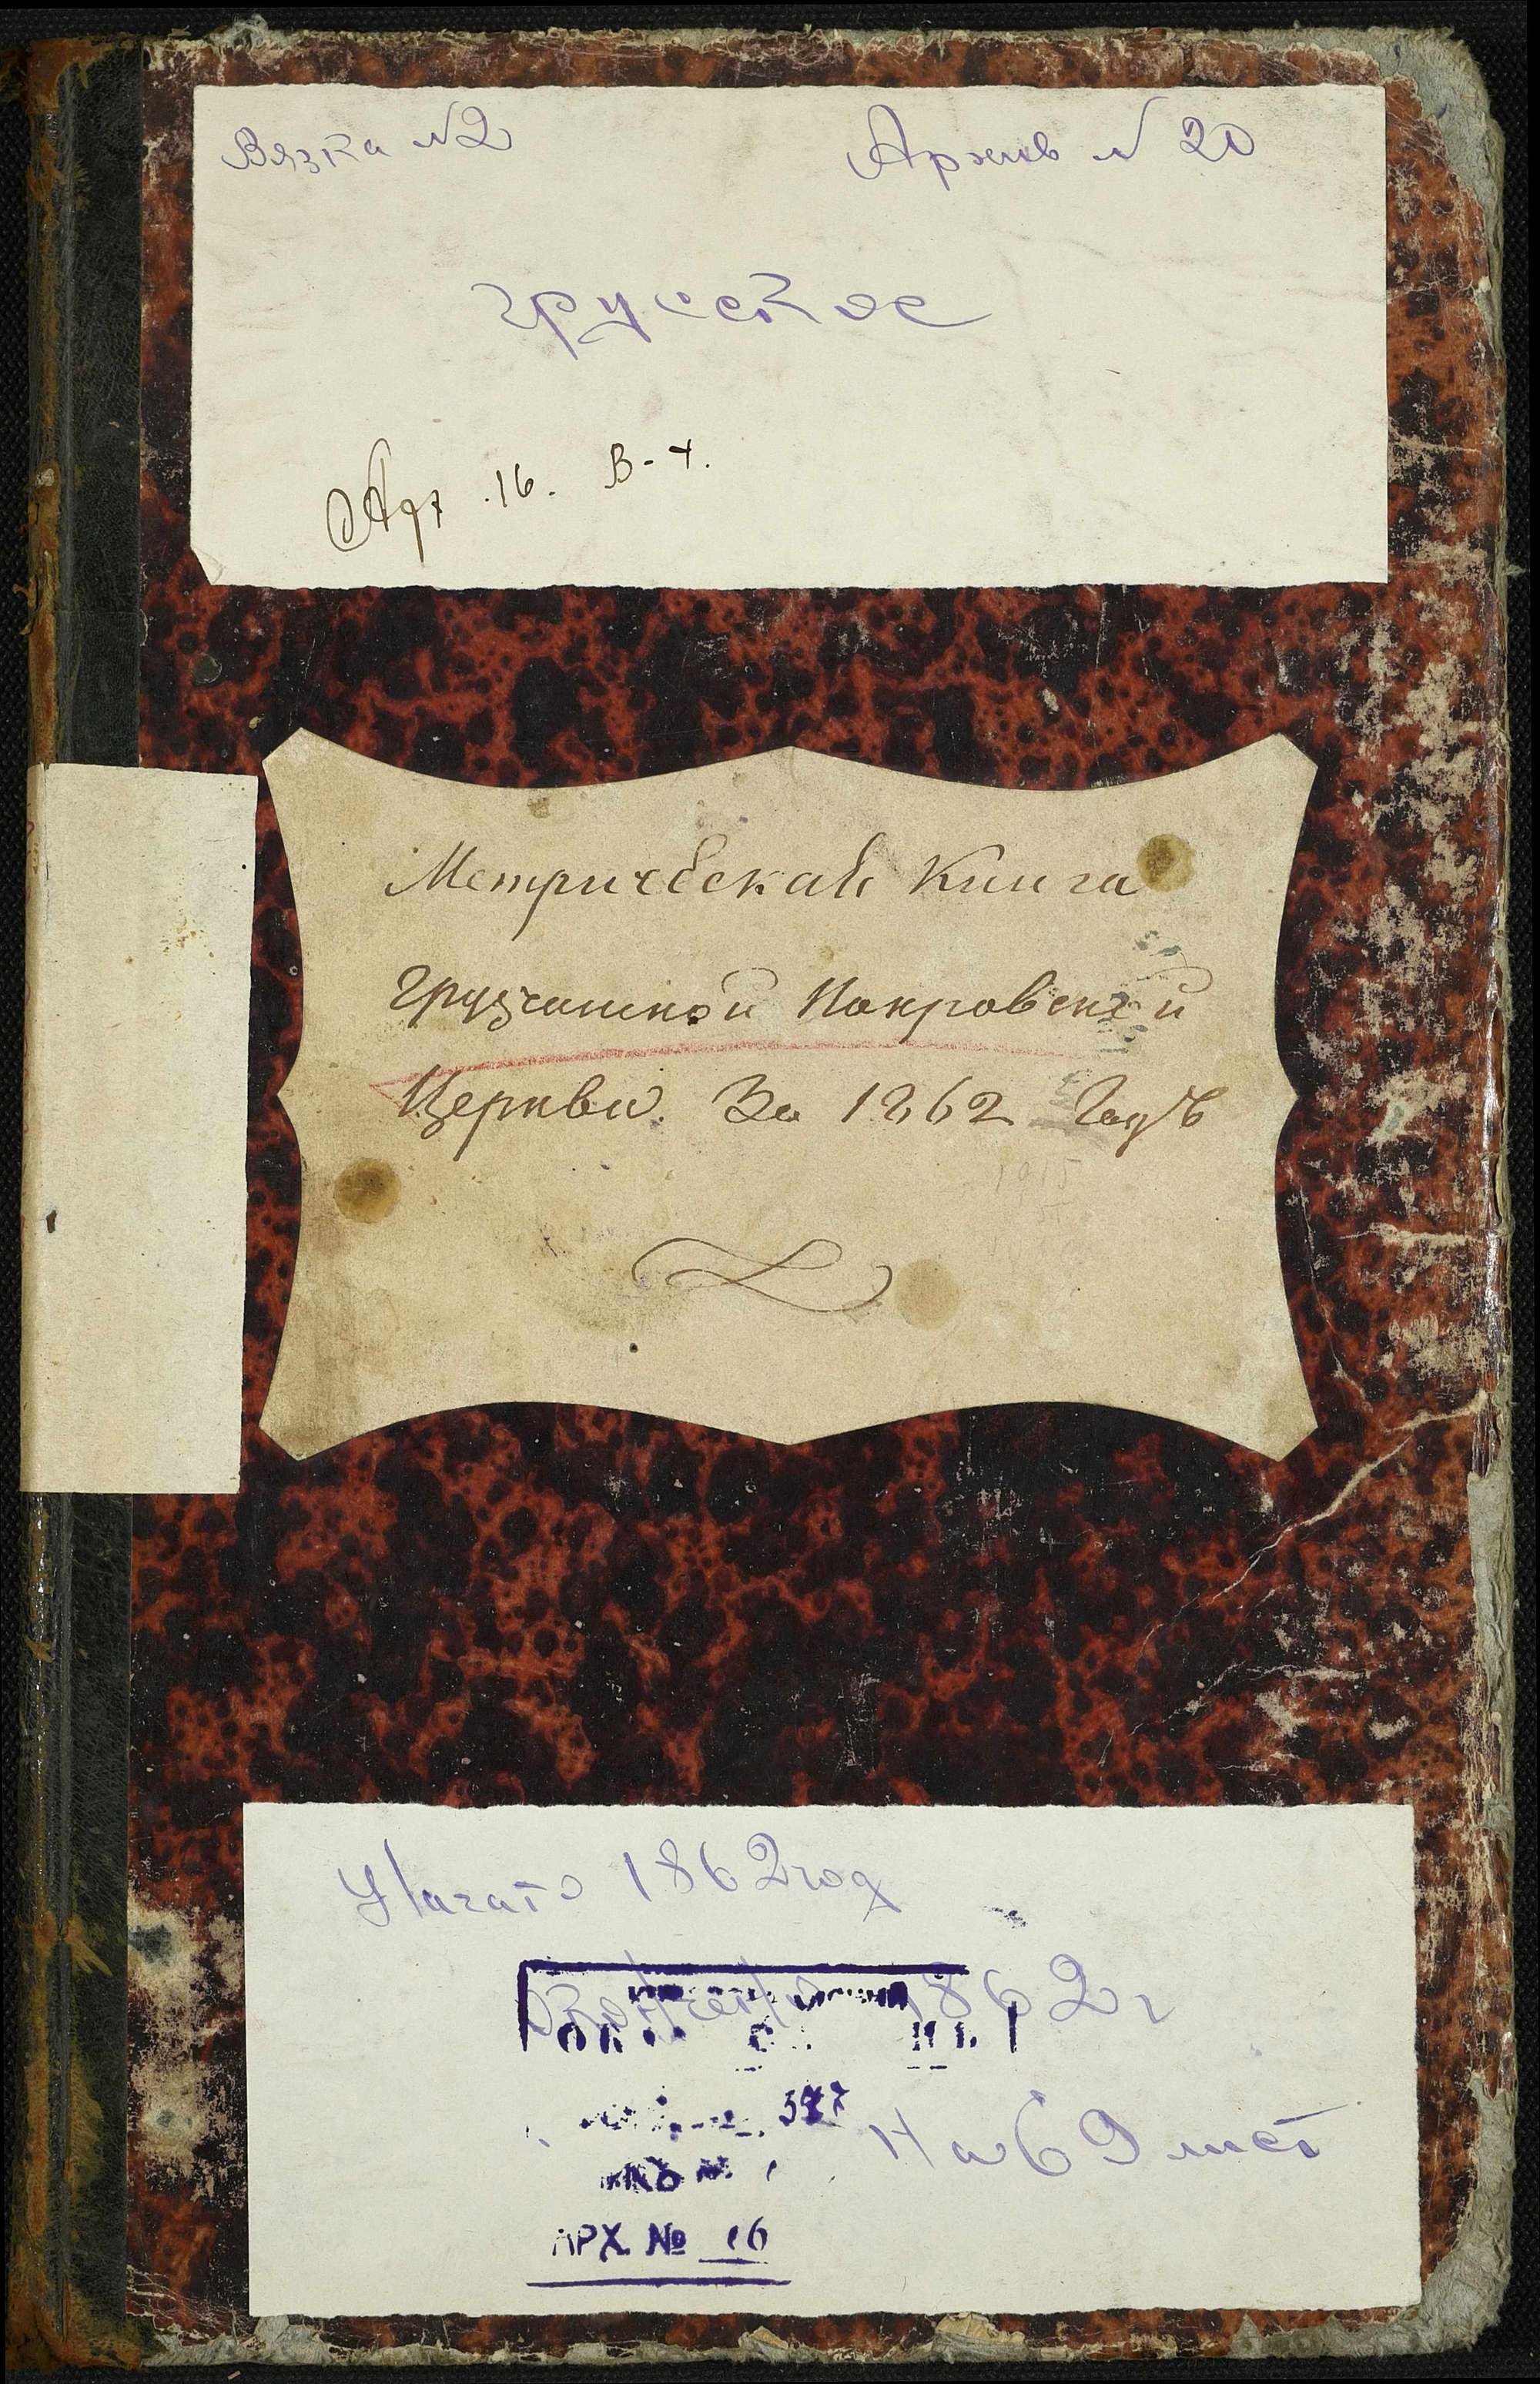 Вязка №2
Архив № 20
грузское
Арх .16. В-4.
Метрическая Книга
Грузчанской Покровской
Церкви. За 1862 Годъ
1915
Начато 1862 год
Окончено 1862 г
577
На 69 лист
АРХ. № 16